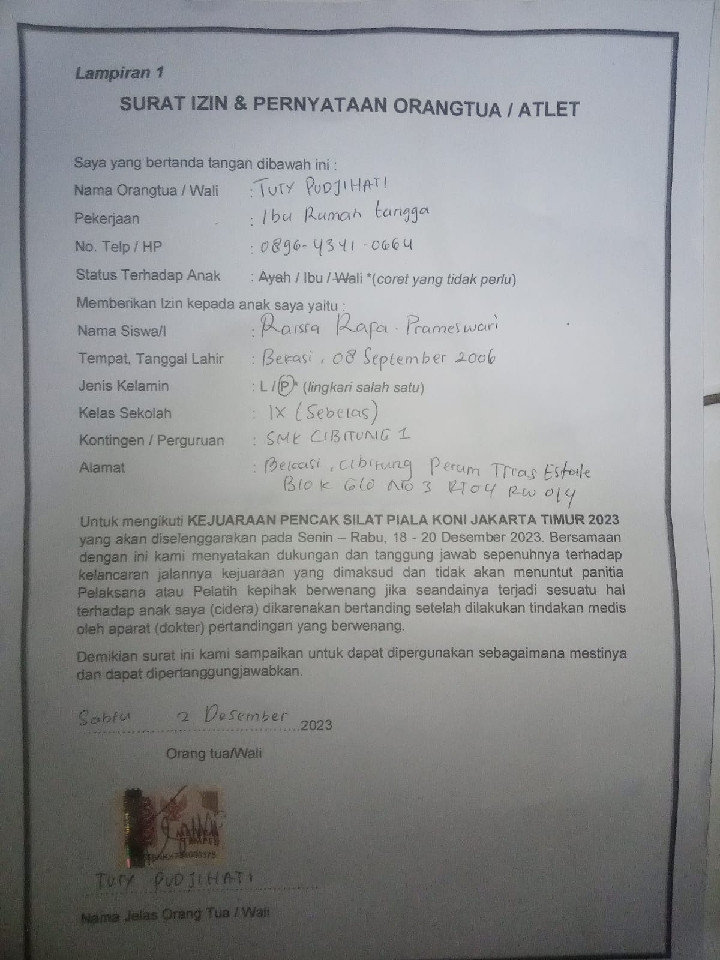 Lampiran 1
SURAT IZIN & PERNYATAAN ORANGTUA / ATLET
Saya yang bertanda tangan dibawah ini :
Nama Orangtua / Wali : TUTY PUDJIHATI
Pekerjaan : Ibu Rumah tangga
No. Telp / HP : 0896-4341-0664
Status Terhadap Anak : Ayah / Ibu / Wali *(coret yang tidak perlu)
Memberikan Izin kepada anak saya yaitu :
Nama Siswa/I : Raisra Rafa Prameswari
Tempat, Tanggal Lahir : Bekasi, 08 September 2006
Jenis Kelamin : L / P* (lingkari salah satu)
Kelas Sekolah : IX (Sebelas)
Kontingen / Perguruan : SMK CIBITUNG 1
Alamat : Bekasi, Cibitung Perum Estate
Blok G10 NO 3 RT04 RW 014
Untuk mengikuti KEJUARAAN PENCAK SILAT PIALA KONI JAKARTA TIMUR 2023
yang akan diselenggarakan pada Senin – Rabu, 18 - 20 Desember 2023. Bersamaan
dengan ini kami menyatakan dukungan dan tanggung jawab sepenuhnya terhadap
kelancaran jalannya kejuaraan yang dimaksud dan tidak akan menuntut panitia
Pelaksana atau Pelatih kepihak berwenang jika seandainya terjadi sesuatu hal
terhadap anak saya (cidera) dikarenakan bertanding setelah dilakukan tindakan medis
oleh aparat (dokter) pertandingan yang berwenang.
Demikian surat ini kami sampaikan untuk dapat dipergunakan sebagaimana mestinya
dan dapat dipertanggungjawabkan.
Sabtu 2 Desember 2023
Orang tua/Wali
TUTY PUDJIHATI
Nama Jelas Orang Tua / Wali